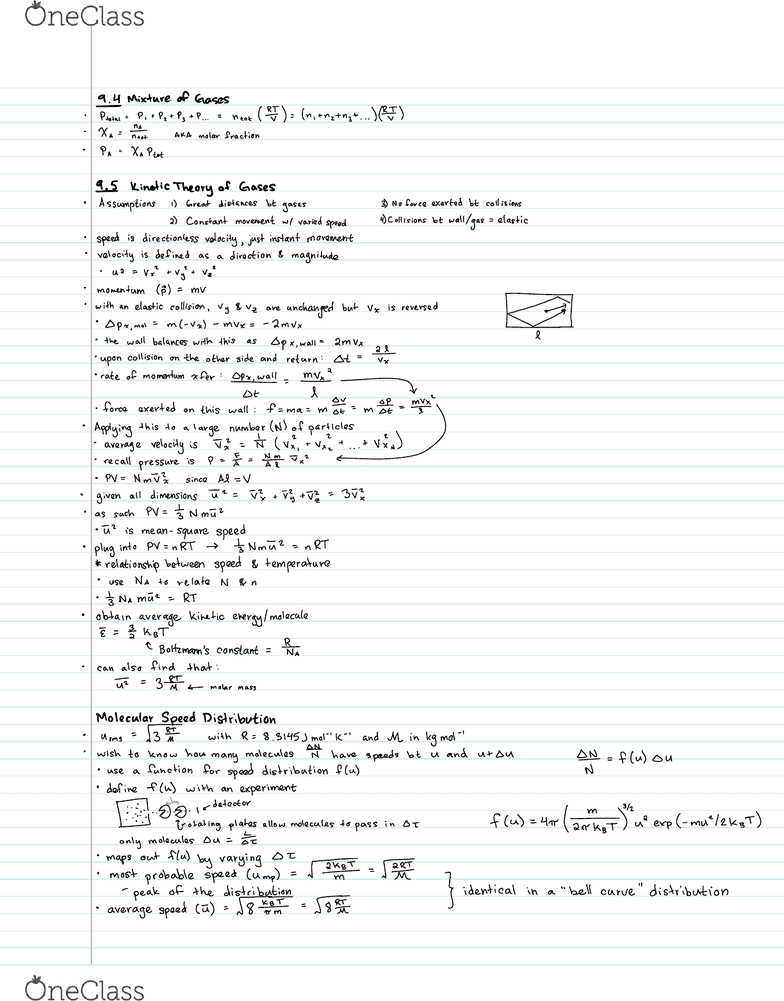 OneClass
9.4 Mixture of Gases
· Ptotal = P1 + P2 + P3 + P... = ntot (RT/V) = (n1+n2+n3+...)(RT/V)
· XA = nA/ntot AKA molar fraction
· PA = XA Ptot
9.5 Kinetic Theory of Gases
· Assumptions 1) Great distances bt gases 3) No force exerted bt collisions
2) Constant movement w/ varied speed 4) Collisions bt wall/gas = elastic
· speed is directionless velocity, just instant movement
· velocity is defined as a direction & magnitude
· u² = Vx² + Vy² + Vz²
· momentum (p⃗) = mV
· with an elastic collision, Vy & Vz are unchanged but Vx is reversed
· Δpx,mol = m(-Vx) - mVx = -2mVx
· the wall balances with this as Δpx,wall = 2mVx
· upon collision on the other side and return: Δt = 2l/Vx
l
· rate of momentum xfer: Δpx,wall/Δt = mVx²/l
· force exerted on this wall: f = ma = m ΔV/Δt = m ΔP/Δt = mVx²/l
· Applying this to a large number (N) of particles
· average velocity is V̄x² = 1/N (Vx1² + Vx2² + ... + VxN²)
· recall pressure is P = F/A = Nm/Al V̄x²
· PV = NmV̄x² since Al = V
· given all dimensions ū² = V̄x² + V̄y² + V̄z² = 3V̄x²
· as such PV = 1/3 Nmū²
· ū² is mean-square speed
· plug into PV = nRT → 1/3 Nmū² = nRT
* relationship between speed & temperature
· use NA to relate N & n
· 1/3 NA mū² = RT
· obtain average kinetic energy/molecule
ε̄ = 3/2 KBT
↖ Boltzmann's constant = R/NA
· can also find that:
u̅² = 3 RT/M ← molar mass
Molecular Speed Distribution
· urms = √(3 RT/M) with R = 8.3145 J mol⁻¹ K⁻¹ and M in kg mol⁻¹
· wish to know how many molecules ΔN/N have speeds bt u and u+Δu ΔN/N = f(u) Δu
· use a function for speed distribution f(u)
· define f(u) with an experiment
← detector
rotating plates allow molecules to pass in Δτ
f(u) = 4π (m/2πKBT)^3/2 u² exp(-mu²/2KBT)
only molecules Δu = L/Δτ
· maps out f(u) by varying Δτ
· most probable speed (ump) = √(2KBT/m) = √(2RT/M)
- peak of the distribution
} identical in a "bell curve" distribution
· average speed (ū) = √(8 KBT/πm) = √(8 RT/M)
OneClass